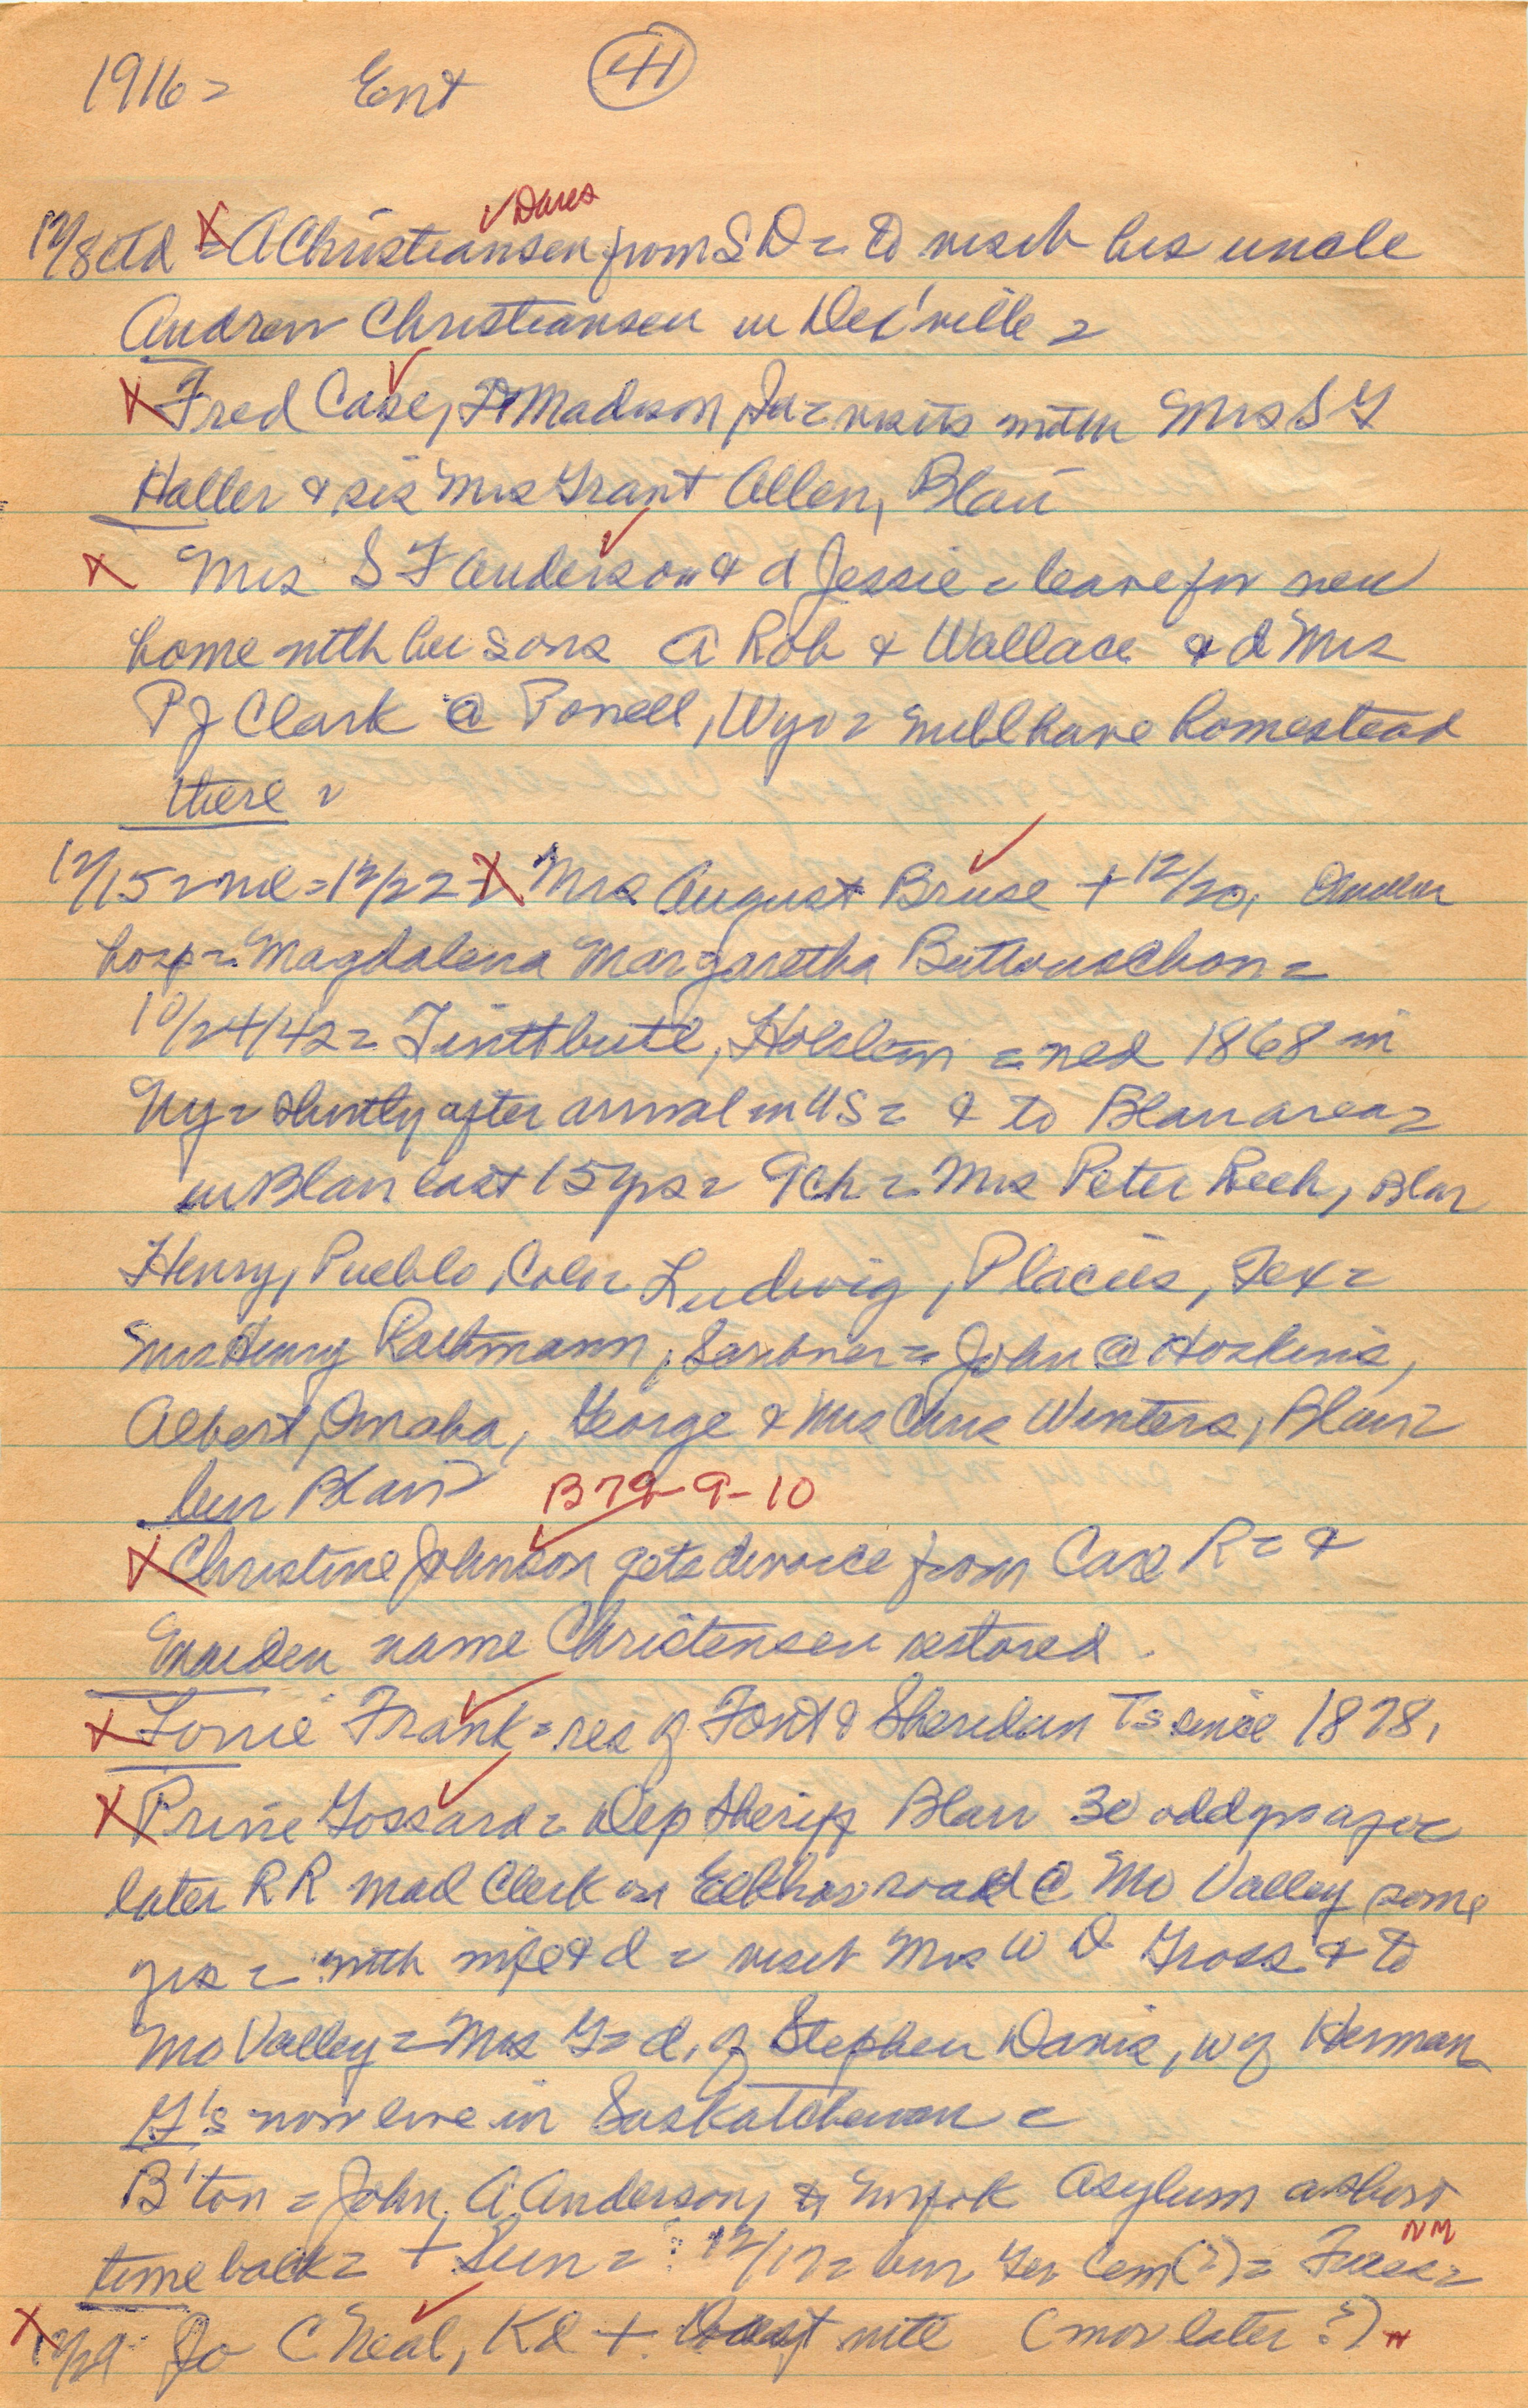 1916 = Ent 41
✓ Danes
12/8 ctd X = A Christiansen from S D = to visit his uncle
Andrew Christiansen in Del'ville =
X Fred Case, Ft Madison, Ia = visits mother Mrs S G
Haller & sis Mrs Grant Allen, Blair
X Mrs S F Anderson & d Jessie = leave for new
home with her sons A Rob & Wallace & d Mrs
P J Clark @ Powell, Wyo = will have homestead
there =
12/15 = nil = 12/22 = X Mrs August Bruse + 12/20, Omaha
hosp = Magdalena Margaretha
10/24/42 = , = wed 1868 in
NY = shortly after arrival in US = & to Blair area =
in Blair last 15 yrs = 9 ch = Mrs Peter Reeh, Blair
Henry, Pueblo, Colo = Ludwig, , Tex =
Mrs Henry Rathmann, Scribner = John @ Hoskins,
Albert, Omaha, George & Mrs Chris Winters, Blair =
bur Blair B 79-9-10
X Christine Johnson gets divorce from Carl R = &
maiden name Christensen restored.
X Frank = res of Font & Sheridan Ts since 1878.
X Gossard = Dep Sheriff Blair 30 odd yrs ago =
later R R mail clerk on Elkhorn road @ Mo Valley some
yrs = with wife & d = visit Mrs W D Gross & to
Mo Valley = Mrs G = d. of Stephen Davis, w of Herman
G's now live in Saskatchewan =
B'ton = John A Anderson, to Norfok Asylum a short
NM
time back = + Sun = 12/17 = bur Ger Cem (?) =
X 12/29 Jo C Neal, Kd + last nite (mor later?)